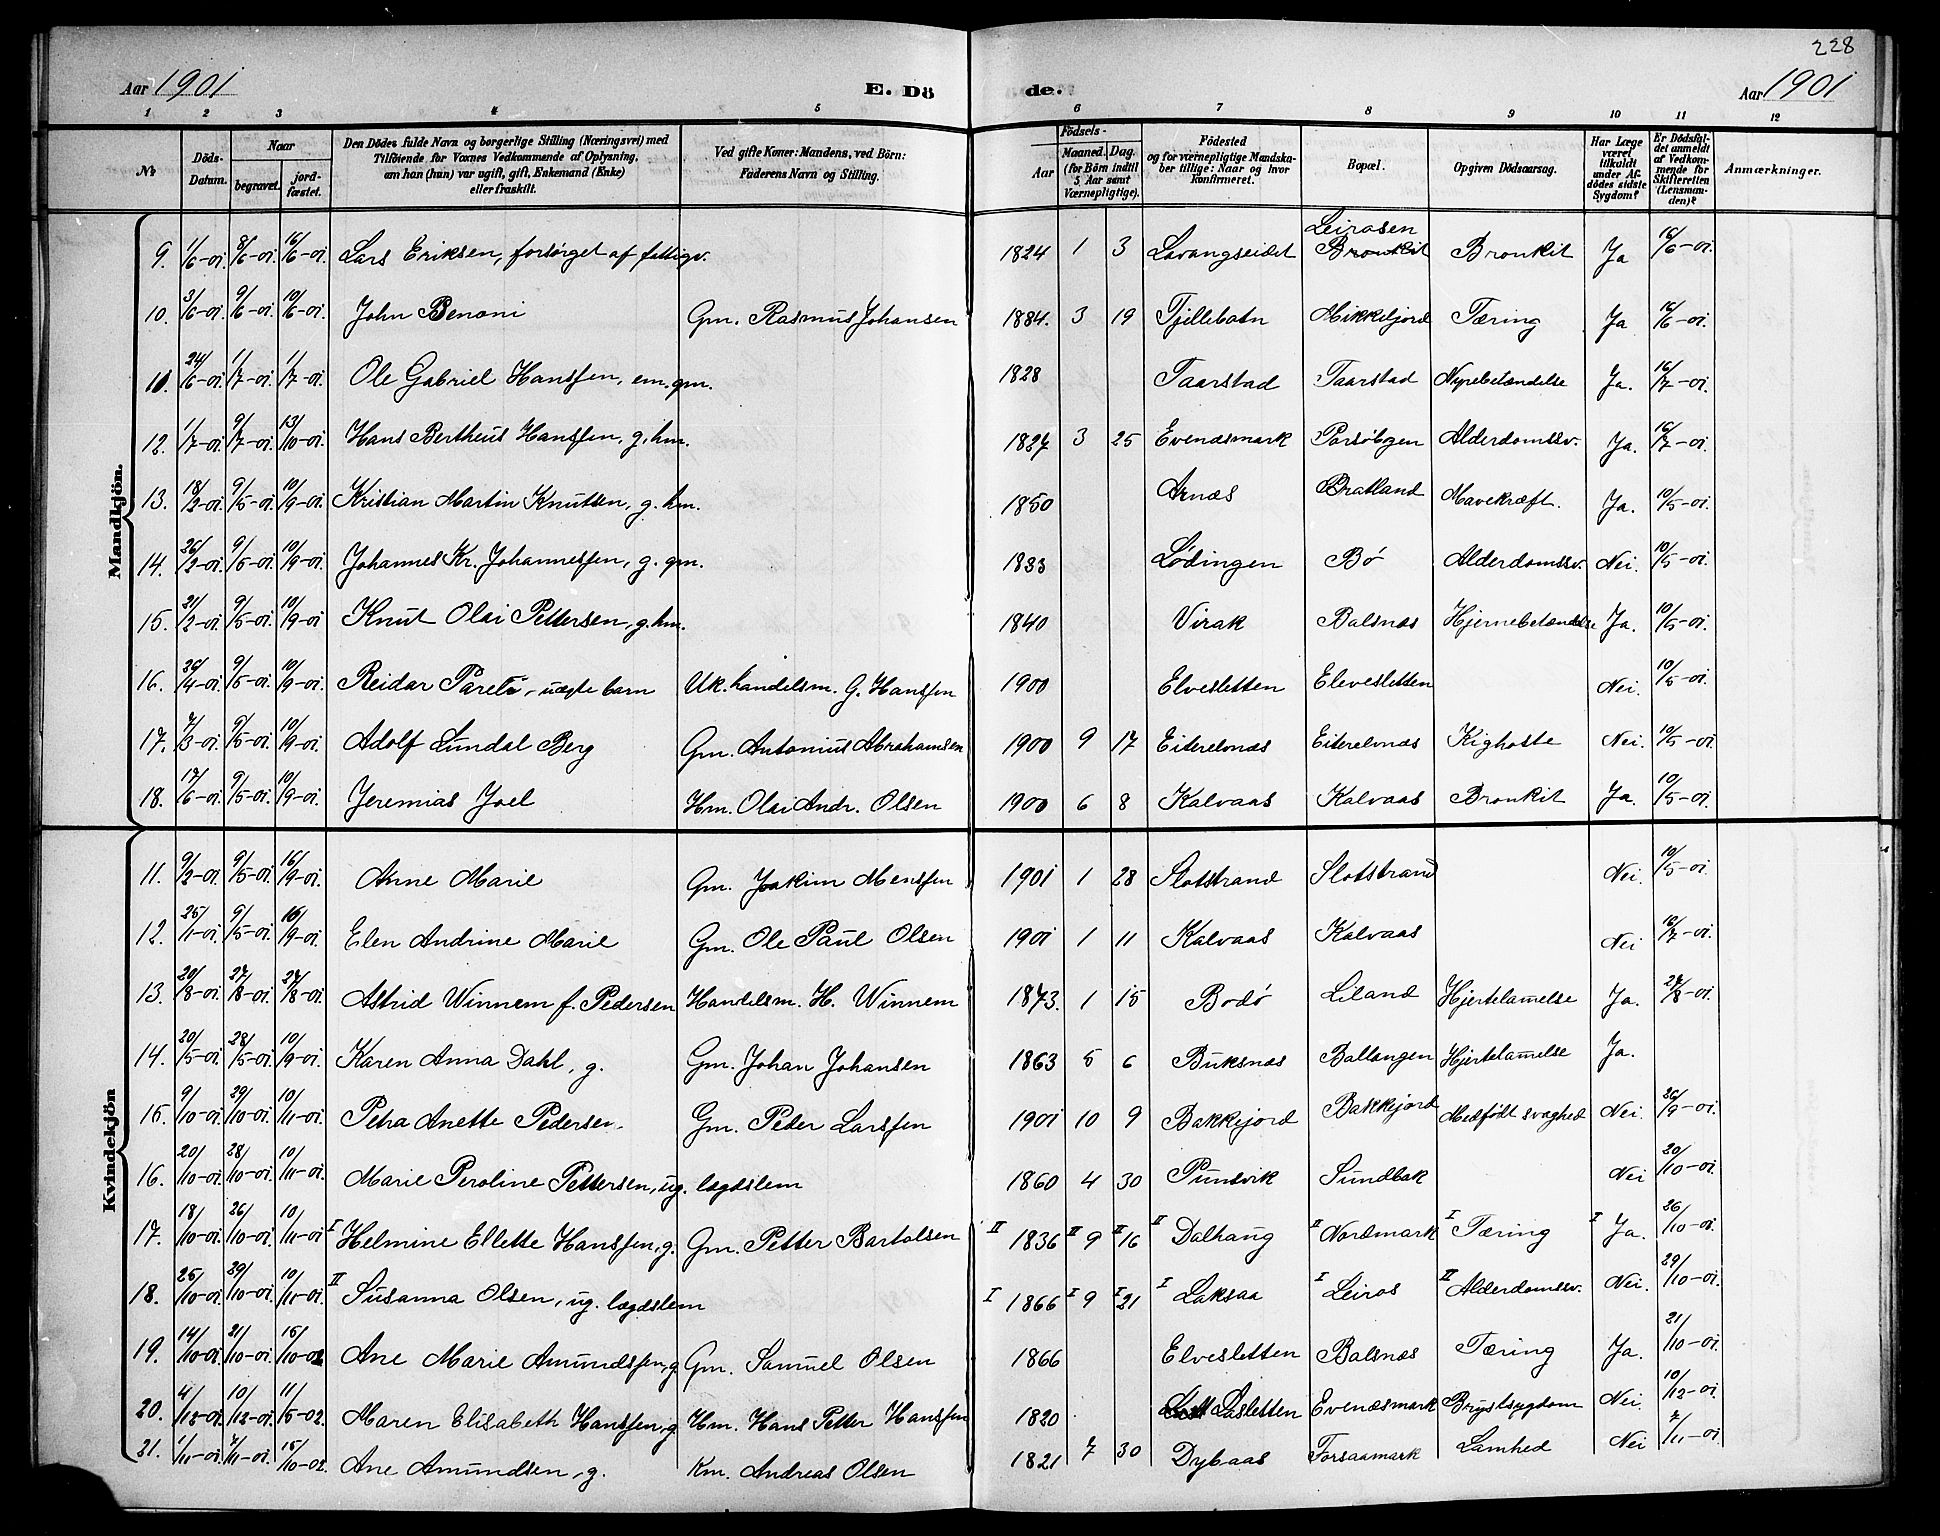 228
Aar 1901 E. Dö de. Aar 1901
1 2 3 4 5 6 7 8 9 10 11 12
№ Döds-Datum. Naar begravet. jordfæstet. Den Dödes fulde Navn og borgerlige Stilling (Næringsvei) med Tilföiende for Voxnes Vedkommende af Oplysning, om han (hun) var ugift, gift, Enkemand (Enke) eller fraskilt. Ved gifte Koner: Mandens, ved Börn: Faderens Navn og Stilling. Födsels- Aar Maaned. Dag. (for Börn indtil 5 Aar samt Værnepligtige). Födested og for værnepligtige Mandskaber tillige: Naar og hvor Konfirmeret. Bopæl. Opgiven Dödsaarsag. Har Læge været tilkaldt under Afdödes sidste Sygdom? Er Dödsfaldet anmeldt af Vedkommende for Skifteretten (Lensmanden)? Anmærkninger.
Mandkjön.
9. 1/6-01. 8/6-01. 16/6-01. Lars Eriksen, forsörget af fattigv. 1824 1 3 Lavangseidet Leirosen Bronkit Bronkit Ja 16/6-01.
10. 3/6-01. 9/6-01. 10/6-01. John Benoni Gm. Rasmus Johansen 1884. 3 19 Tjillebotn Mikkefjord Tæring Ja 16/6-01.
10. 24/6-01. 1/7-01. 1/7-01. Ole Gabriel Hanssen, em. gm. 1828 Taarstad Taarstad Nyrebetændelse Ja. 16/7-01.
12. 1/7-01. 9/7-01. 13/10-01. Hans Bertheus Hanssen, g. hm. 1827 3 25 Evenæsmark Porsöbgen Alderdomssv. Ja. 16/7-01.
13. 18/2-01. 9/5-01. 10/9-01. Kristian Martin Knutsen, g. hm. 1850 Arnæs Bratland Mavekræft. Ja. 10/5-01.
14. 26/2-01. 9/5-01. 10/9-01. Johannes Kr. Johannessen, g. gm. 1833 Lødingen Bø Alderdomssv. Nei. 10/5-01.
15. 21/2-01. 9/5-01. 10/9-01 Knut Olai Pettersen, g. hm. 1840 Virak Balsnæs Hjernebetændelse Ja. 10/5-01.
16. 26/4-01. 9/5-01. 10/9-01. Reidar Pareli, uægte barn Uk. handelsm. G. Hanssen 1900 Elvesletten Elevesletten Nei. 10/5-01.
17. 7/3-01. 9/5-01. 10/9-01. Adolf Lundal Berg Gm. Antonius Abrahamsen 1900 9 17 Eiterelvnæs Eiterelvnæs Kighoste Nei. 10/5-01
18. 17/6-01. 9/5-01. 10/9-01. Jeremias Joel Hm. Olai Andr. Olsen 1900 6 8 Kalvaas Kalvaas Bronkit Ja. 10/5-01.
Kvindekjön
11. 9/2-01. 9/5-01. 16/9-01. Anne Marie Gm. Joakim Menssen 1901 1 28 Slotstrand Slotstrand Nei. 10/5-01.
12. 25/1-01. 9/5-01. 16/9-01. Elen Andrine Marie Gm. Ole Paul Olsen 1901 1 11 Kalvaas Kalvaas Nei 16/7-01.
13. 20/8-01. 27/8-01. 27/8-01. Astrid Winnem f. Pedersen Handelsm. H. Winnem 1873. 1 15 Bodø Liland Hjertelamelse Ja. 27/8-01.
14. 20/5-01. 28/5-01. 10/9-01. Karen Anna Dahl, g. Gm. Johan Johansen 1863 5 6 Buksnæs Ballangen Hjertelamelse Ja.
15. 9/10-01. 29/10-01. 10/11-01. Petra Anette Pedersen. Gm. Peder Larssen 1901 10 9 Bakkejord Bakkejord Medfødt svaghed Nei. 26/9-01.
16. 20/10-01. 28/10-01. 10/11-01. Marie Peroline Pettersen, ug. lægdslem 1860 4 30 Punsvik Sundbak Nei 20/10-01.
17. 18/10-01. 26/10-01. 10/11-01 I Helmine Ellette Hanssen, g. Gm. Petter Bartolsen II 1836 II 9 II 16 II Dalhaug II Nordmark I Tæring I Ja. 26/10-01.
18. 25/10-01. 29/10-01. 10/11-01. II Susanna Olsen, ug. lægdslem I 1866 I 9 I 21 I Laksaa I Leiros II Alderdomssv. Nei. 29/10-01.
19. 14/10-01. 21/10-01. 15/10-02 Ane Marie Amundssen, g. Gm. Samuel Olsen 1866 Elvesletten Balsnæs Tæring Ja. 21/10-01.
20. 4/12-01. 10/12-01. 11/5-02. Maren Elisabeth Hanssen, g. Hm. Hans Petter Hanssen 1820 Lasletten Evenæsmark Brystsygdom Nei. 10/12-01.
21. 1/11-01. 7/11-01. 15/10-02. Ane Amundsen, g. Km. Andreas Olsen 1821 7 30 Dybaas Forsaamark Lamhed Nei 7/11-01.